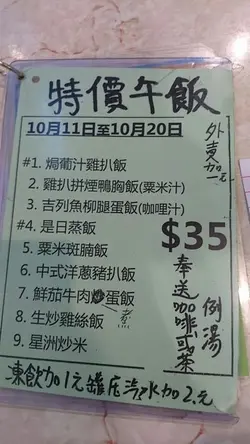 特價午飯
10月11日至10月20日
外賣加一元
#1. 焗葡汁雞扒飯
2. 雞扒拼煙鴨胸飯(粟米汁)
3. 吉列魚柳腿蛋飯(咖哩汁)
#4. 是日蒸飯
5. 粟米斑腩飯
6. 中式洋蔥豬扒飯
7. 鮮茄牛肉炒蛋飯
8. 生炒雞絲飯
9. 星洲炒米
$35
奉送咖啡或茶
例湯
凍飲加1元罐庄汽水加2元